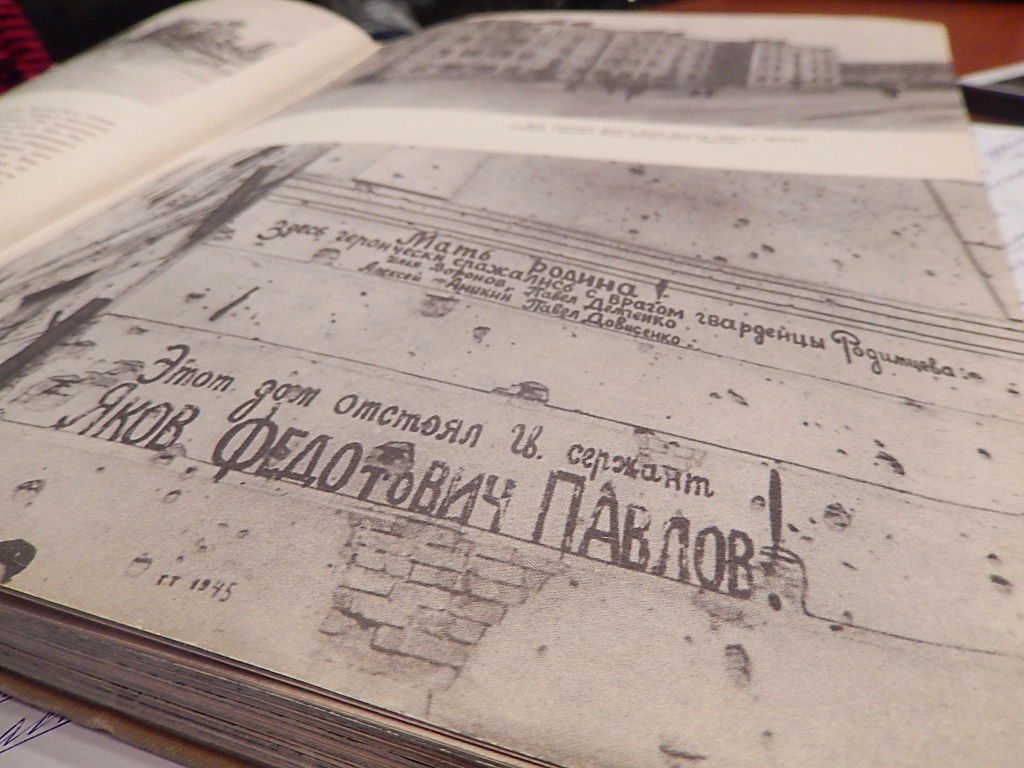 Мать Родина!
Здесь героически сражались с врагом гвардейцы Родимцева:
Илья Воронов, Павел Демченко
Алексей Аникин Павел Довисенко.
Этот дом отстоял гв. сержант
Яков ФЕДОтОВИЧ ПАВЛОВ!
1945